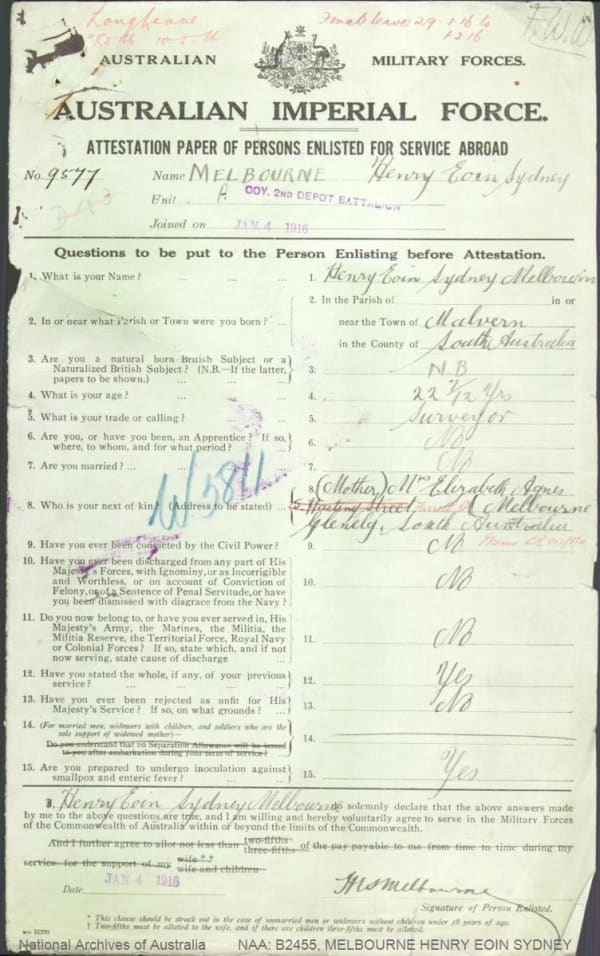 Final leave 29-1-16 to
1.2.16
F.W.W
AUSTRALIAN MILITARY FORCES.
AUSTRALIAN IMPERIAL FORCE.
ATTESTATION PAPER OF PERSONS ENLISTED FOR SERVICE ABROAD
No. 9577 Name MELBOURNE Henry Eoin Sydney
Unit A COY. 2ND DEPOT BATTALION
Joined on JAN 4 1916
Questions to be put to the Person Enlisting before Attestation.
1. What is your Name? ... ... ... 1. Henry Eoin Sydney Melbourne
2. In or near what Parish or Town were you born? ... 2. In the Parish of in or
near the Town of Malvern
in the County of South Australia
3. Are you a natural born British Subject or a
Naturalized British Subject? (N.B.—If the latter,
papers to be shown.) ... ... ... 3. N.B
4. What is your age? ... ... ... 4. 22 7/12 Yrs
5. What is your trade or calling? ... ... 5. Surveyor
6. Are you, or have you been, an Apprentice? If so,
where, to whom, and for what period? ... ... 6. No
7. Are you married? ... ... ... ... 7. No
8. Who is your next of kin? (Address to be stated) ... 8. (Mother) Mrs Elizabeth Agnes
Melbourne
Glenelg, South Australia
9. Have you ever been convicted by the Civil Power? ... 9. No
10. Have you ever been discharged from any part of His
Majesty's Forces, with Ignominy, or as Incorrigible
and Worthless, or on account of Conviction of
Felony, or of a Sentence of Penal Servitude, or have
you been dismissed with disgrace from the Navy? 10. No
11. Do you now belong to, or have you ever served in, His
Majesty's Army, the Marines, the Militia, the
Militia Reserve, the Territorial Force, Royal Navy
or Colonial Forces? If so, state which, and if not
now serving, state cause of discharge ... 11. No
12. Have you stated the whole, if any, of your previous
service? ... ... ... ... 12. Yes
13. Have you ever been rejected as unfit for His
Majesty's Service? If so, on what grounds? ... 13. No
14. (For married men, widowers with children, and soldiers who are the
sole support of widowed mother)—
Do you understand that no Separation Allowance will be issued
to you after embarkation during your term of service? 14.
15. Are you prepared to undergo inoculation against
smallpox and enteric fever? ... ... 15. Yes
W5811
I, Henry Eoin Sydney Melbourne do solemnly declare that the above answers made
by me to the above questions are true, and I am willing and hereby voluntarily agree to serve in the Military Forces
of the Commonwealth of Australia within or beyond the limits of the Commonwealth.
And I further agree to allot not less than two-fifths three-fifths of the pay payable to me from time to time during my
service for the support of my wife ** wife and children
Date JAN 4 1916 HES Melbourne
Signature of Person Enlisted.
* This clause should be struck out in the case of unmarried men or widowers without children under 18 years of age.
† Two-fifths must be allotted to the wife, and if there are children three-fifths must be allotted.
National Archives of Australia NAA: B2455, MELBOURNE HENRY EOIN SYDNEY